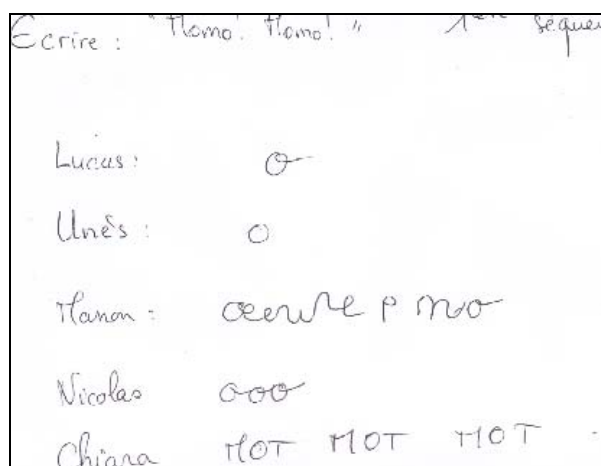 Ecrire : "Momo! Momo!" 1ère séquen
Lucas : o
Unès : o
Manon : P mo
Nicolas ooo
Chiara MOT MOT MOT